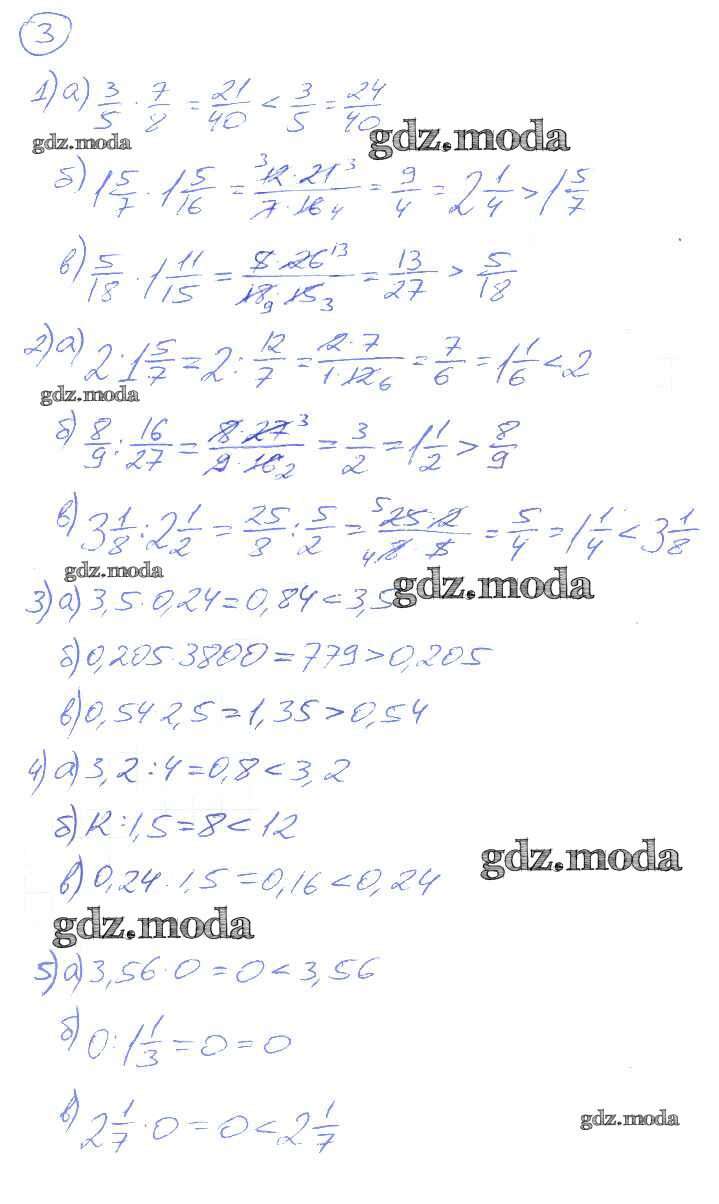 3
1) а) 3/5 · 7/8 = 21/40 < 3/5 = 24/40
gdz.moda gdz.moda
б) 1 5/7 · 1 5/16 = 12·21/7·16 = 9/4 = 2 1/4 > 1 5/7
в) 5/18 · 1 11/15 = 5·26/18·15 = 13/27 > 5/18
2) а) 2 : 1 5/7 = 2 : 12/7 = 2·7/1·12 = 7/6 = 1 1/6 < 2
gdz.moda
б) 8/9 : 16/27 = 8·27/9·16 = 3/2 = 1 1/2 > 8/9
в) 3 1/8 : 2 1/2 = 25/8 : 5/2 = 25·2/8·5 = 5/4 = 1 1/4 < 3 1/8
gdz.moda gdz.moda
3) а) 3,5·0,24=0,84<3,5
б) 0,205·3800=779>0,205
в) 0,54·2,5=1,35>0,54
4) а) 3,2:4=0,8<3,2
б) 12:1,5=8<12
gdz.moda
в) 0,24·1,5=0,16<0,24
gdz.moda
5) а) 3,56·0=0<3,56
б) 0:1 1/3=0=0
в) 2 1/7·0=0<2 1/7
gdz.moda